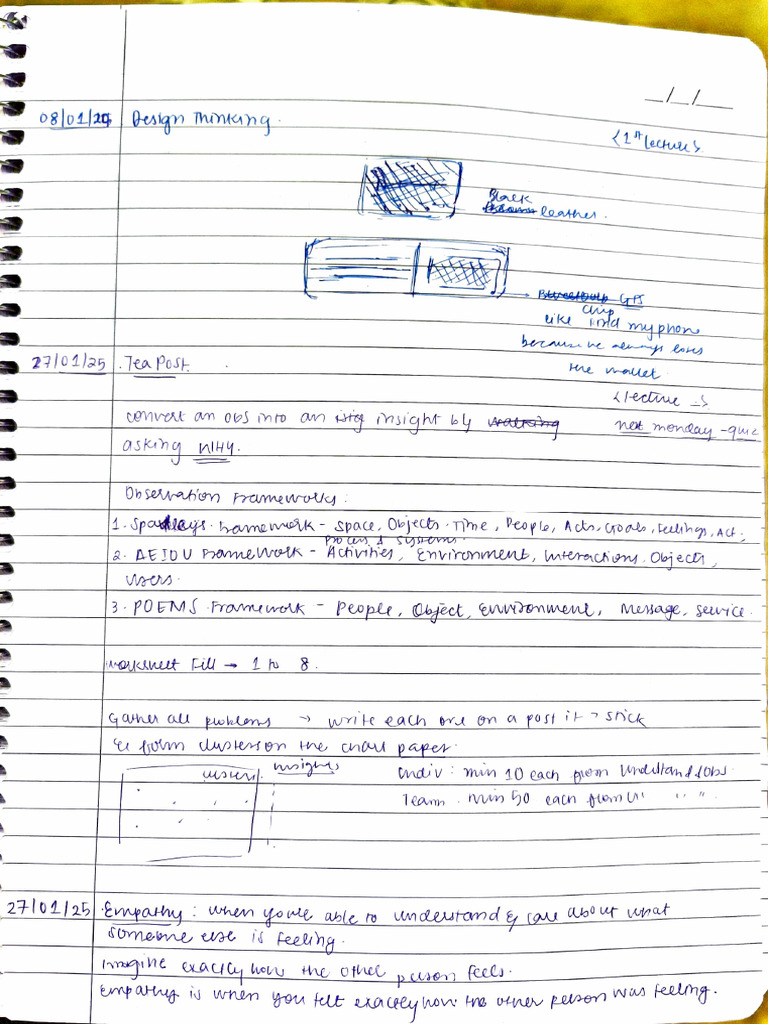 _/_/__
08/01/25 Design Thinking.
<1st lecture>
Black
leather.
GPS
chip
like find my phone
because he always loses
the wallet.
27/01/25 . Tea Post .
<lecture ->
convert an obs into an insight by
next monday - quiz
asking WHY.
Observation Frameworks:
1. Spadleys. framework - Space, Objects. Time, People, Acts, Goals, Feelings, Act;
Process & systems.
2. AEIOU Framework - Activities, Environment, Interactions. Objects,
Users.
3. POEMS. Framework - People, Object, Environment, Message, Service.
Worksheet Fill → 1 to 8.
Gather all problems → write each one on a post it → stick
& form clusters on the chart paper.
users. insights
Indiv: min 10 each from Understand & obs.
Team. min 50 each from " " ".
27/01/25 Empathy: when you're able to understand & care about what
someone else is feeling.
Imagine exactly how the other person feels.
Empathy is when you felt exactly how the other person was feeling.